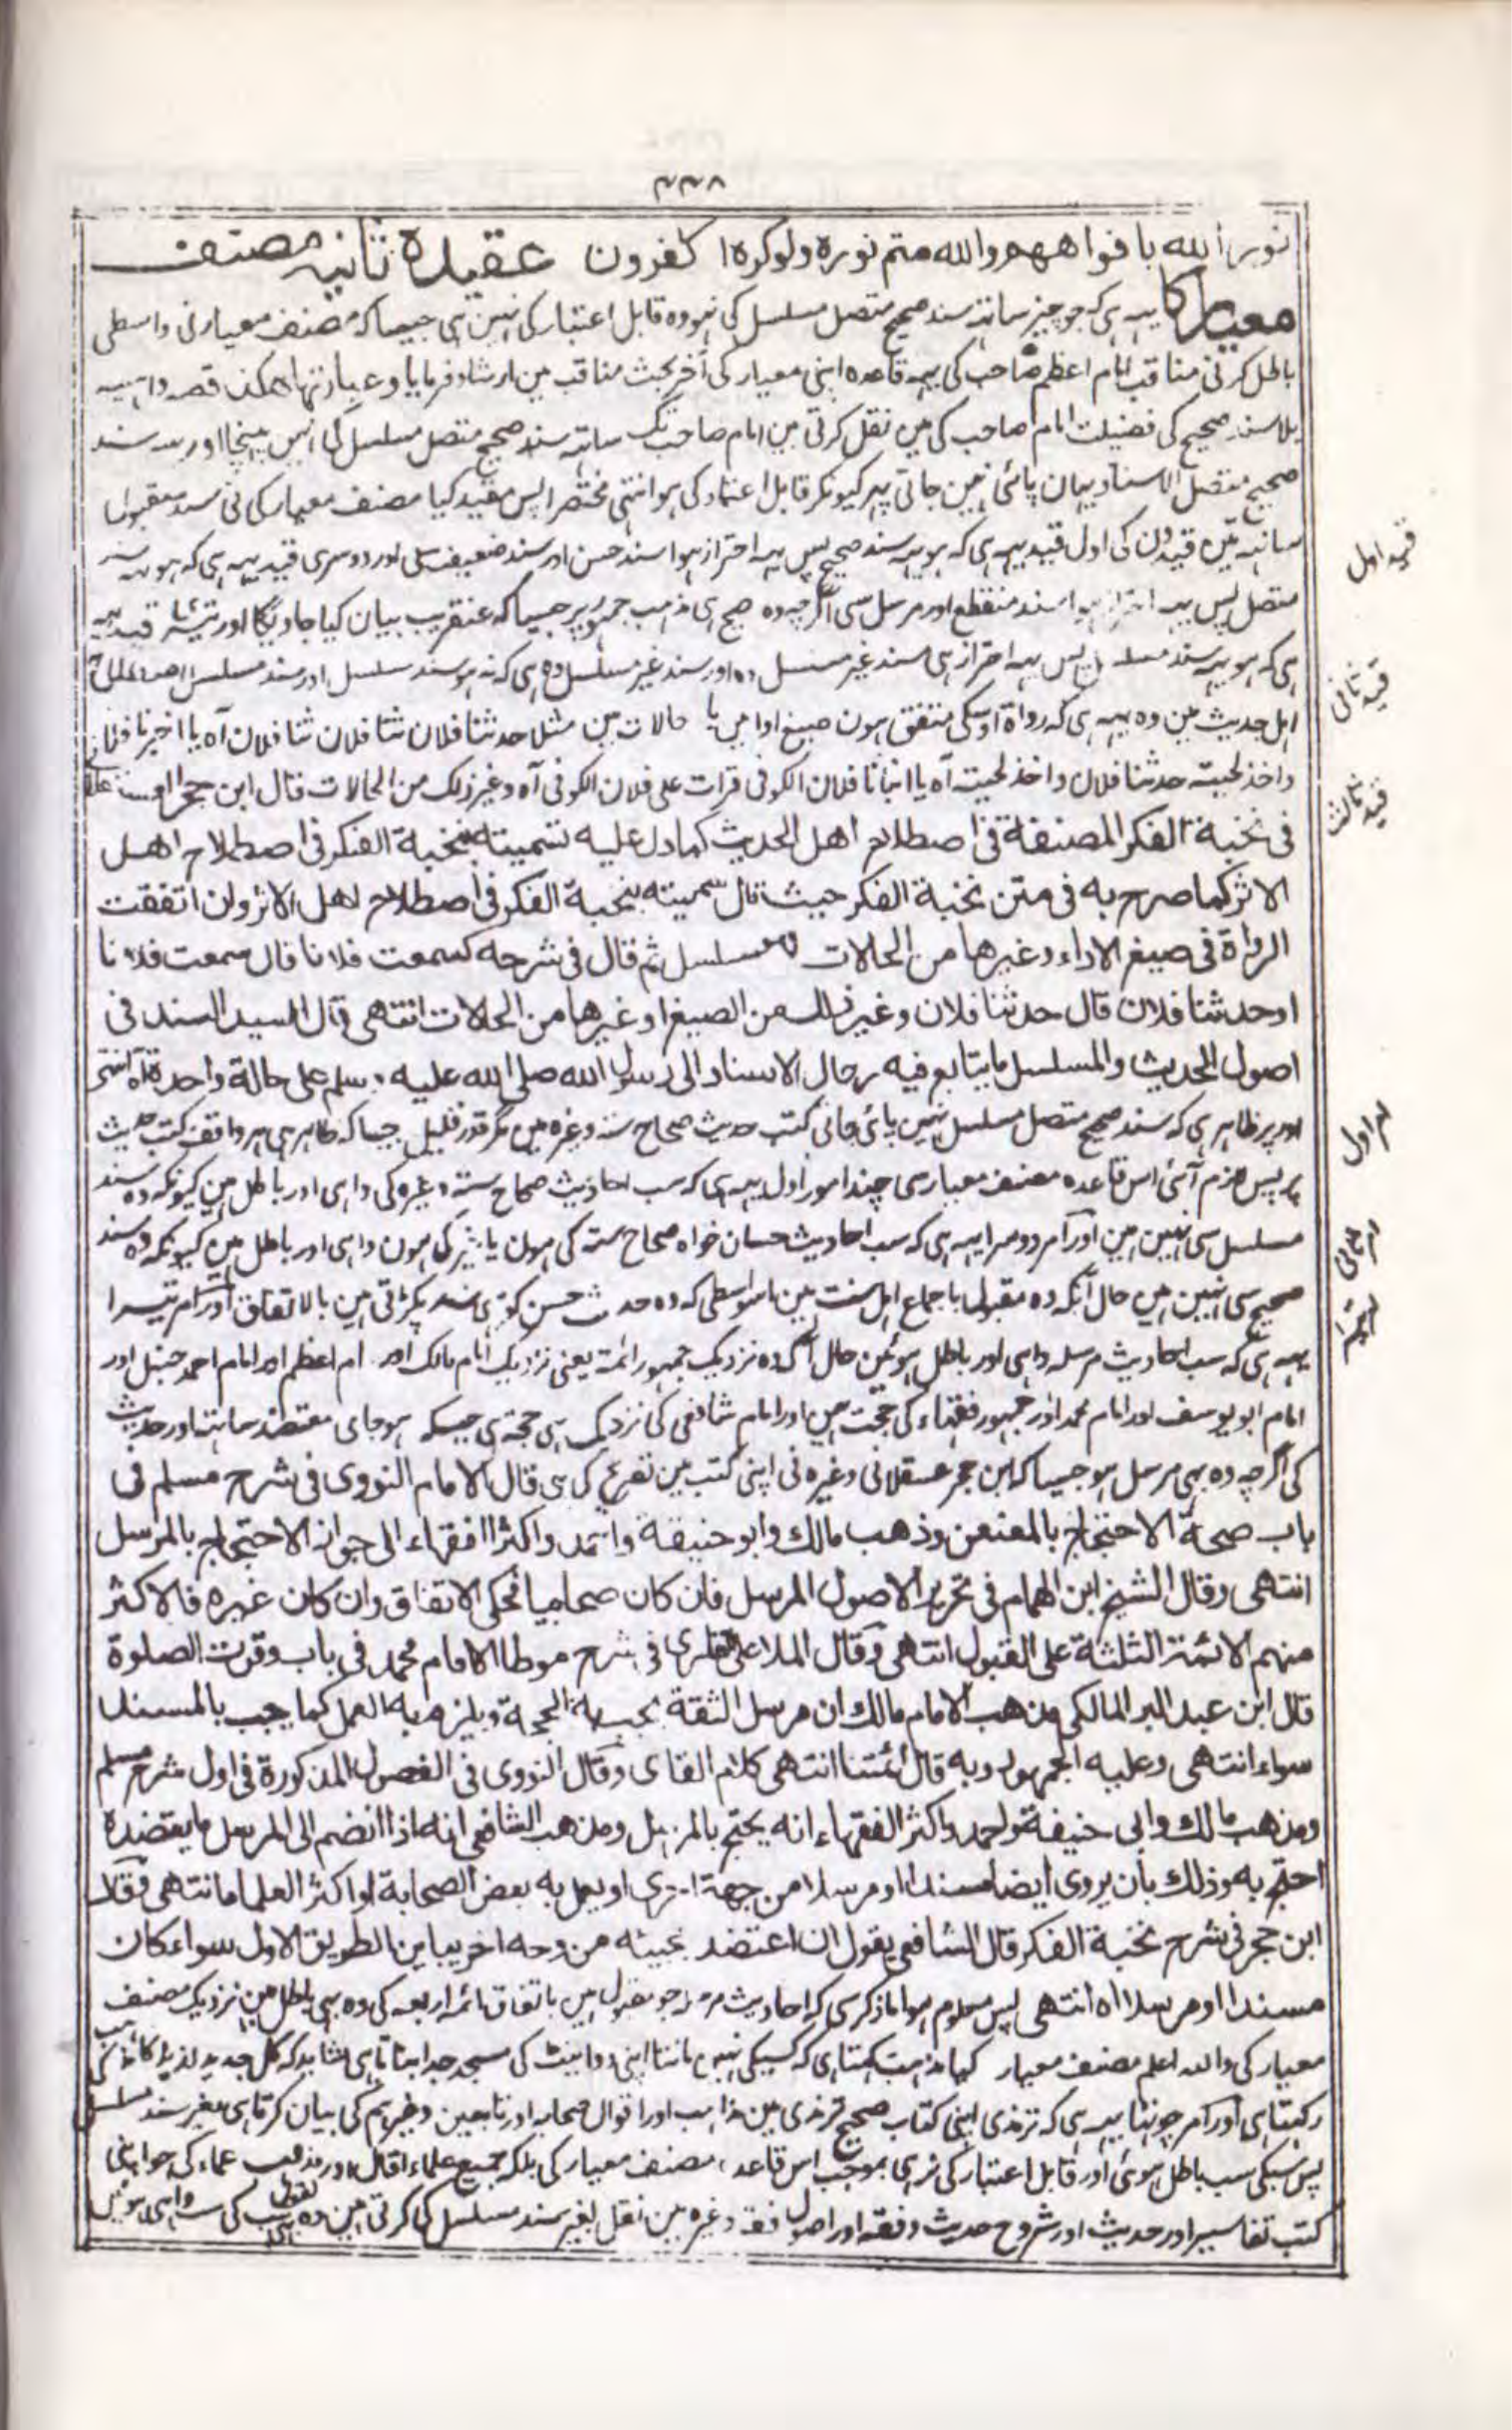 ۳۳۸
نور الله بافواههم والله متم نوره ولوكره الكفرون عقیدہ ثانیہ مصنف
معیار کا یہہ ہی کہ جو چیز ساتہہ سند صحیح متصل مسلسل کی نہو وہ قابل اعتبار کی نہین ہی جیسا کہ مصنف معیار نی واسطی
باطل کرنی مناقب امام اعظم صاحب کی یہہ قاعدہ اپنی معیار کی آخر بحث مناقب مین ارشاد فرمایا و عبارتہا ہکذا قصہ واہیہ
بلا سند صحیح کی فضیلت امام صاحب کی مین نقل کرتی مین امام صاحب تک ساتہہ سند صحیح متصل مسلسل کی نہین پہنچا اور سند
صحیح متصل الاسناد یہان پائی نہین جاتی پہر کیونکر قابل اعتماد کی ہو انتہی مختصرا پس مقید کیا مصنف معیار کی نی سند مقبول
ساتہہ تین قیدون کی اول قید یہہ ہی کہ ہو یہہ سند صحیح پس یہہ احتراز ہوا سند حسن اور سند ضعیف سی اور دوسری قید یہہ ہی کہ ہو یہہ سند
متصل پس یہہ احتراز ہوا سند منقطع اور مرسل سی اگرچہ وہ صحیح ہی مذہب جمہور پر جیسا کہ عنقریب بیان کیا جاویگا اور تیسری قید یہہ
ہی کہ ہو یہہ سند مسلسل پس یہہ احتراز ہی سند غیر مسلسل اور سند غیر مسلسل وہ ہی کہ نہو سند مسلسل اور سند مسلسل اصطلاح
اہل حدیث مین وہ یہہ ہی کہ رواۃ اوسکی متفق ہون صیغ ادا مین یا حالات مین مثلا حدثنا فلان ثنا فلان ثنا فلان آہ یا اخبرنا فلان
واخذ لحیتہ حدثنا فلان واخذ لحیتہ آہ یا انبانا فلان الکوفی قرات علی فلان الکوفی آہ وغیر ذلک من الحالات قال ابن حجر
فی نخبة الفکر المصنفة فی اصطلاح اهل الحدیث کما دل علیه تسمیته بنخبة الفکر فی اصطلاح اهل
الاثر کما صرح به فی متن نخبة الفکر حیث قال سمیته بنخبة الفکر فی اصطلاح اهل الاثر وان اتفقت
الرواة فی صیغ الاداء وغیرها من الحالات فهو مسلسل ثم قال فی شرحه کسمعت فلانا قال سمعت فلانا
او حدثنا فلان قال حدثنا فلان وغیر ذلک من الصیغ او غیرها من الحالات انتهی قال السید السند فی
اصول الحدیث والمسلسل ما یتابع فیه رجال الاسناد الی رسول الله صلی الله علیه وسلم علی حالة واحدة آه انتهی
اور پر ظاہر ہی کہ سند صحیح متصل مسلسل نہین پائی جاتی کتب حدیث صحاح ستہ وغیرہ مین مگر قدر قلیل جیسا کہ ظاہر ہی ہر واقف کتب حدیث
پر پس لازم آئی اس قاعدہ مصنف معیار سی چند امور اول یہہ ہی کہ سب احادیث صحاح ستہ وغیرہ کی واہی اور باطل ہین کیونکہ وہ سند
مسلسل سی نہین ہین اور امر دوسرا یہہ ہی کہ سب احادیث حسان خواہ صحاح ستہ کی ہون یا غیر کی ہون واہی اور باطل ہین کیونکہ وہ سند
صحیح سی نہین ہین حال آنکہ وہ مقبول باجماع اہل سنت ہین اسواسطی کہ وہ حدیث حسن کو بہی سند پکڑتی ہین بالاتفاق اور امر تیسرا
یہہ ہی کہ سب احادیث مرسلہ واہی اور باطل ہوئین حال آنکہ وہ نزدیک جمہور ائمہ یعنی نزدیک امام مالک اور امام اعظم اور امام احمد حنبل اور
امام ابو یوسف اور امام محمد اور جمہور فقہاء کی حجت ہین اور امام شافعی کی نزدیک بہی حجة ہی جبکہ ہو جای معتضد ساتہہ اور حدیث
کی اگرچہ وہ بہی مرسل ہو جیسا کہ ابن حجر عسقلانی وغیرہ نی اپنی کتب مین تصریح کی ہی قال الامام النووی فی شرح مسلم فی
باب صحة الاحتجاج بالمعنعن وذهب مالک وابو حنیفة واحمد واکثر الفقهاء الی جواز الاحتجاج بالمرسل
انتهی وقال الشیخ ابن الهمام فی تحریر الاصول المرسل فان کان صحابیا فحکی الاتفاق وان کان غیره فالاکثر
منهم الائمة الثلثة علی القبول انتهی وقال الملا علی القاری فی شرح موطا الامام محمد فی باب وقوت الصلوة
قال ابن عبد البر المالکی مذهب الامام مالک ان مرسل الثقة یجب به الحجة ویلزم به العمل کما یجب بالمسند
سواء انتهی وعلیه الجمهور وبه قال ائمتنا انتهی کلام القاری وقال النووی فی الفصول المذکورة فی اول شرح مسلم
ومذهب مالک وابی حنیفة واحمد واکثر الفقهاء انه یحتج بالمرسل ومذهب الشافعی انه اذا انضم الی المرسل ما یعتضده
احتج به وذلک بان یروی ایضا مسندا او مرسلا من جهة اخری او یعمل به بعض الصحابة او اکثر العلما انتهی وقال
ابن حجر فی شرح نخبة الفکر قال الشافعی یقول ان اعتضد بمجیئه من وجه اخر یباین الطریق الاول سواء کان
مسندا او مرسلا اه انتهی پس معلوم ہوا ما ذکر سی کہ احادیث مرسلہ جو مقبول ہین باتفاق ائمہ اربعہ کی وہ بہی باطل ہین نزدیک مصنف
معیار کی واللہ اعلم مصنف معیار کیا مذہب رکہتا ہی کہ کسیکی نہین مانتا اپنی دو اینٹ کی مسجد جدا بناتا ہی شاید کہ کل جدید لذیذ کا مذہب
رکہتا ہی اور امر چوتہا یہہ ہی کہ ترمذی اپنی کتاب صحیح ترمذی مین مذاہب اور اقوال صحابہ اور تابعین وغیرہم کی بیان کرتا ہی بغیر سند مسلسل
پس سبکی سب باطل ہوئی اور قابل اعتبار کی نرہی بموجب اس قاعدہ مصنف معیار کی بلکہ جمیع علماء اقوال اور مذہب علماء کی جو اپنی
کتب تفاسیر اور حدیث اور شروح حدیث وفقہ اور اصول فقہ وغیرہ مین نقل بغیر سند مسلسل کی کرتی ہین وہ سب کی سب واہی ہوئین
قید اول
قید ثانی
قید ثالث
امر اول
امر ثانی